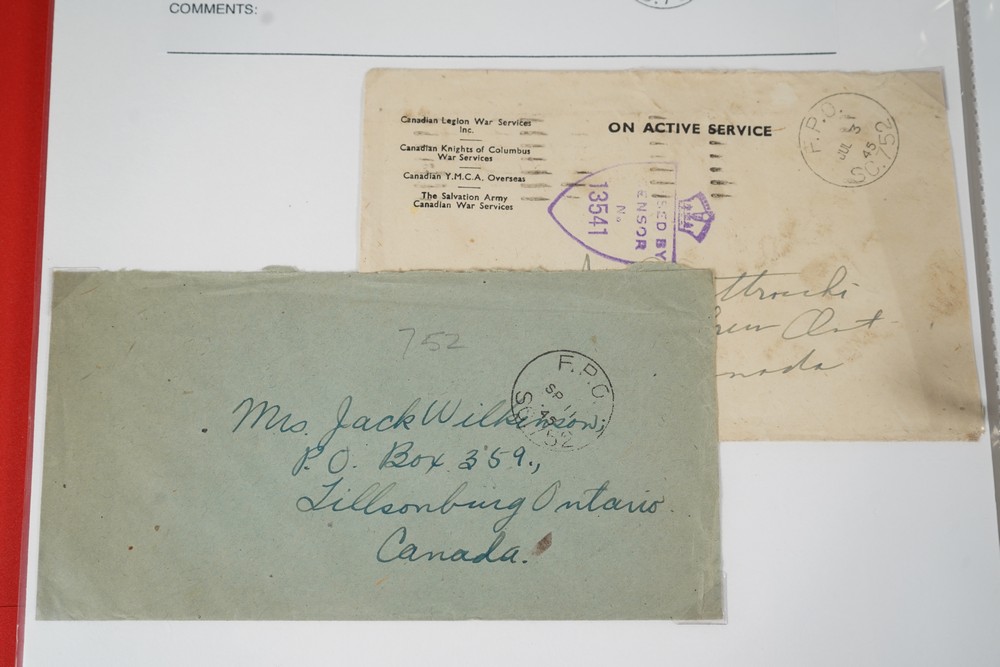 COMMENTS:
Canadian Legion War Services
Inc.
Canadian Knights of Columbus
War Services
Canadian Y.M.C.A. Overseas
The Salvation Army
Canadian War Services
ON ACTIVE SERVICE
F.P.O.
JUL 3
45
SC. 752
SED BY
ENSOR
No.
13541
Ont
nada
752
F.P.O.
SP 11
45
SC. 752
Mrs. Jack Wilkinson,
P.O. Box 359.,
Tillsonburg Ontario.
Canada.